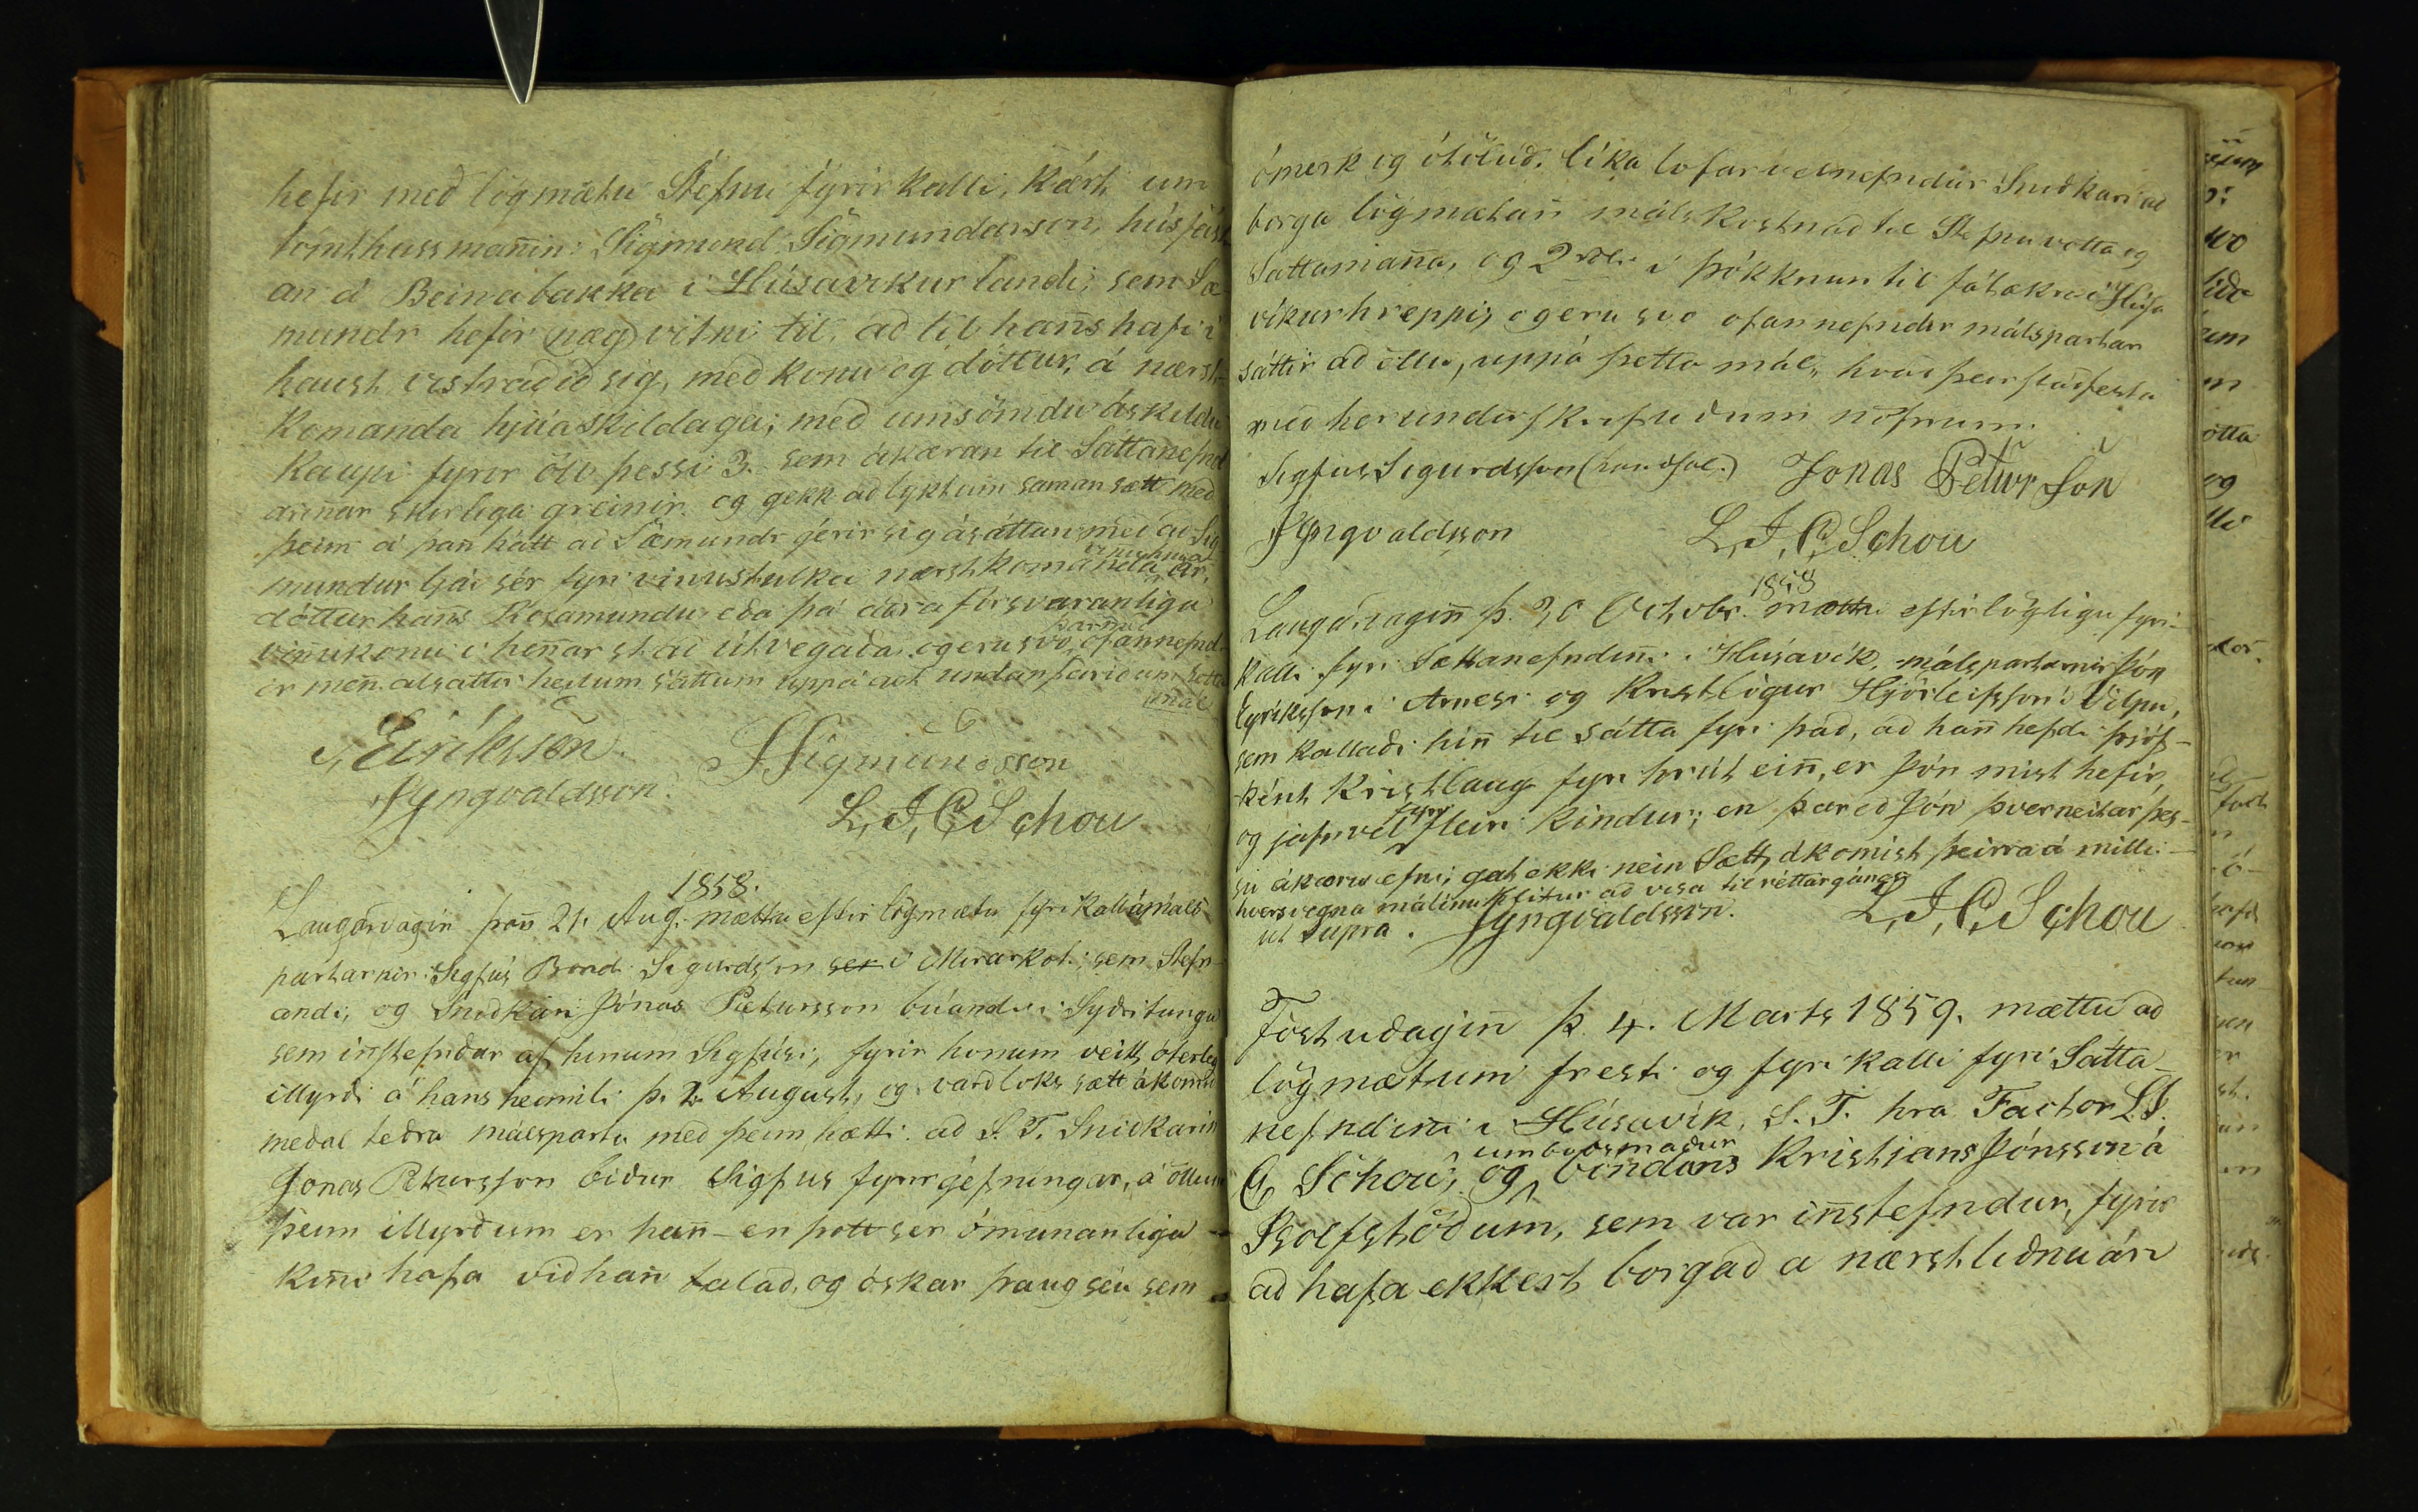 hefir með lögmætu Stefnu fyrirkalli, kært um
tómthussmañin: Sigmund Sigmundarson, húsfast
an á Beinabakka i Húsavíkurlandi; sem Sæ-
mundr hefir næg vitni til, að til hañs hafi i
haust vistradið sig, með konu og dóttur, á nærst-
komanda hjúaskildaga; með umsömdu áskildu
kaupi fyrir öll þessi 3. sem ákæran til Sáttanefnd
ariñar skirliga greinir. og gekk að lyktum saman sætt með
þeim á þañ hátt að Sæmundr gérir sig ásáttan með að Sig-
mundur ljái sér fyri vinnustulku nærstkomanda ár,
dóttur hañs Rosamundu eða þá aðra forsvaranliga
viñukonu i heñar stað útvegaða. og eru svo ofannefnd-
ir meñ alsattir heilum sáttum uppá alt undanfarið um þetta
mál
S, Eiríksson. S Sigmundsson
JYngvaldsson. L, J, C, Schou
1858.
Laugardagin þañ 21. Aug. mættu eftir lögmætu fyrikalli máls
partarnir: Sigfús Bond: Sigurdsson i Mirarkoti; sem Stefn-
andi, og Snidkari Jónas Petursson búandi i Syðritungu
sem inñstefndur af hinum Sigfúsi, fyrir honum veitt óterleg
illyrði á hans heimili þ. 2. August, og varð loks sætt ákomin
meðal teðra málsparta með þeim hætti. að S. T. Sniðkarin
Jonas Petursson biður Sigfus fyrirgefningar, á öllum
þeim illyrðum er hañ – en þott ser ómunanligu –
kuñi hafa við hañ talað, og óskar þaug séu sem
ómerk og ótöluð. líka lofar velnefndur Sniðkari að
borga lögmætañ málskostnað til Stefnuvotta og
Sáttamañna, og 2 rdl. i þókknun til fátækra i Húsa
víkurhreppi, og eru svo ofannefndir málspartar
sáttir að öllu, uppá þetta mál, hvað þeir staðfesta
með herundirskrifuðum nöfnum.
Sigfus Sigurdsson (handsal.) Jonas Petur Son
JYngvaldsson L, J, C, Schou
1858
Laugardagiñ þ. 30 Octobr. mættu eftir lögligu fyri-
kalli fyri Sættanefndiñi i Húsavík, málspartarnir Jón
Eyríksson i Arnesi og Kristlögur Hjörleifsson i Vilpu,
sem kallaði hiñ til sátta fyri það, að hañ hefdi þjóf-
ként Kristlaug fyri hrút eiñ, er Jón mist hefir,
og jafnvel fyri fleiri kindur; en þareð Jón þverneitar þes-
su ákæru efni, gat ekki nein Sætt ákomist þeirra á milli –
hversvegna málinu hlítur að vísa til réttargángs
ut supra. JYngvaldsson. L, J, C, Schou
Föstudagiñ þ. 4. Marts 1859. mættu að
lögmætum fresti og fyrikalli fyri Sátta-
nefndiñi i Húsavík, S. T. hra Factor L J.
C, Schou, og umboðsmaður bóndans Kristjans Jónsson á
Rólfstöðum, sem var iñstefndur, fyrir
að hafa ekkert borgað a nærstliðnu ári